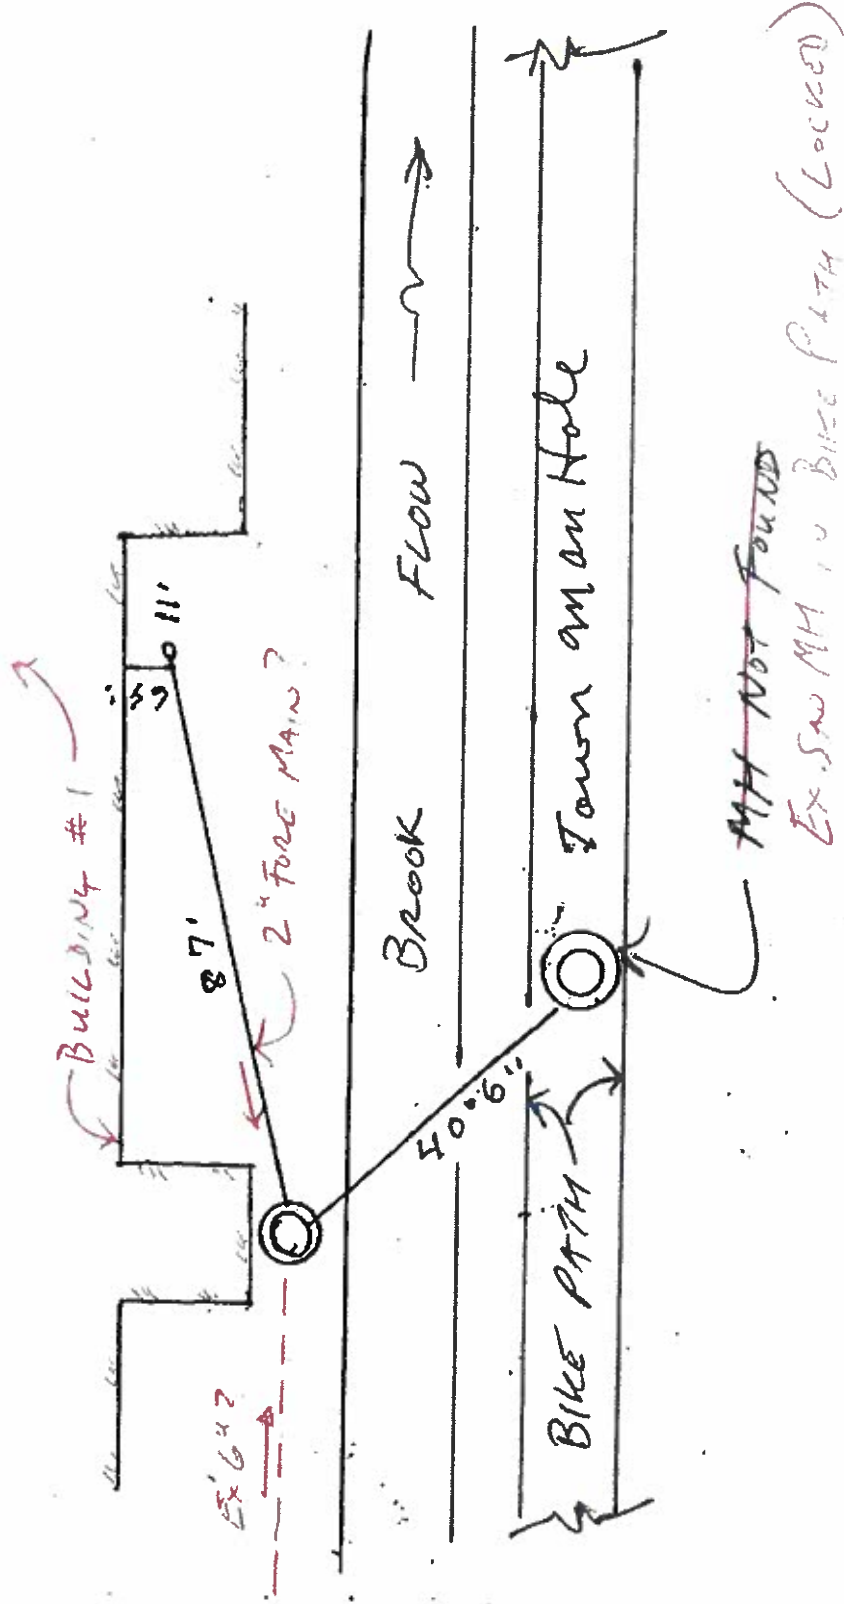 BUILDING #1
11'
87'
2" FORE MAIN?
EX. 6"?
BROOK FLOW
40'-6"
Town man Hole
BIKE PATH
MH NOT FOUND
EX. SW MH IN BIKE PATH (LOCKED)